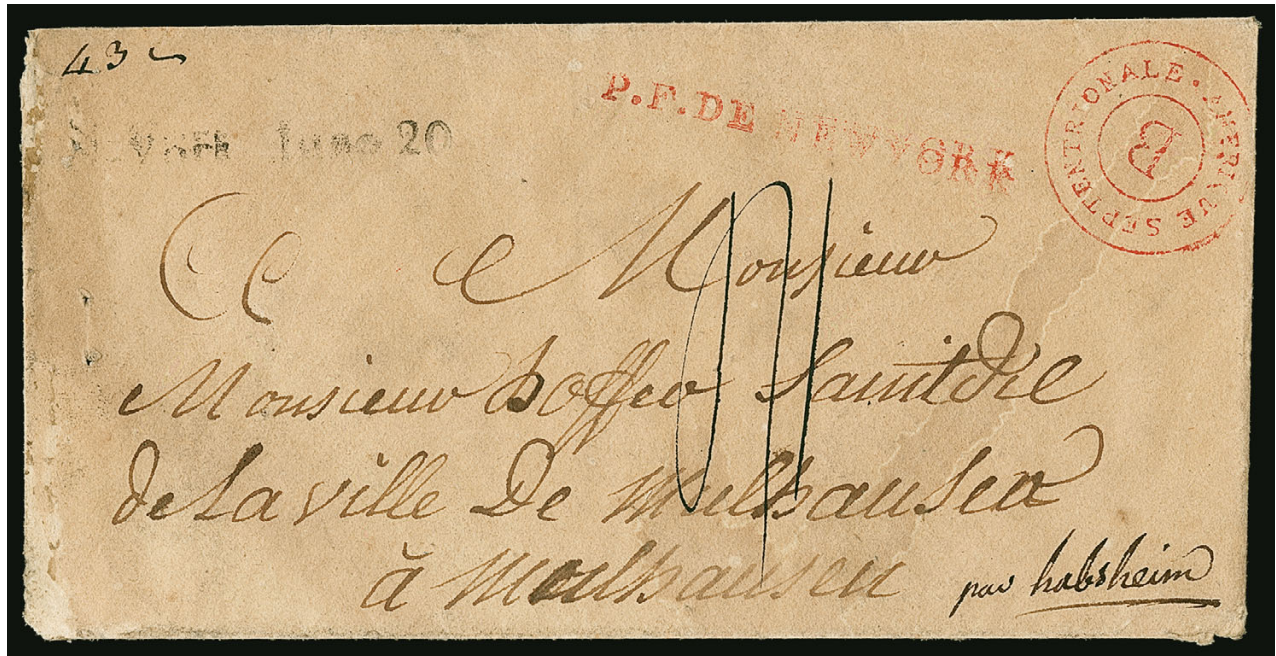 43
York June 20
P.F. DE NEWYORK
AMERIQUE SEPTENTRIONALE.
B
Monsieur
Monsieur hoffer
de La ville De Mulhausen
à Mulhausen
par habsheim